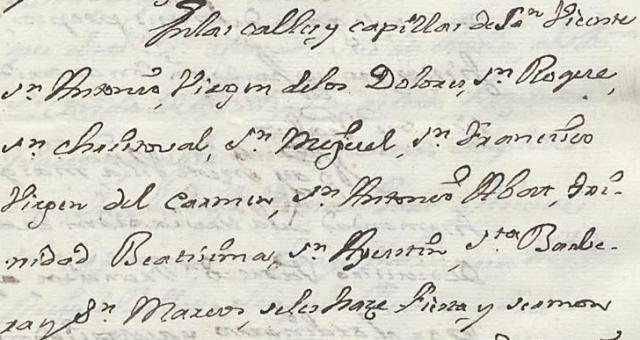 En las calles y capillas de Sn Vicente
Sn Antonio, Virgen de los Dolores, Sn Roque,
Sn Christoval, Sn Miguel, Sn Francisco
Virgen del Carmen, Sn Antonio Abat, Tri-
nidad Beatisima, Sn Agustin, Sta Barbe-
ra y Sn Marcos, seles haze Fiesta y sermon